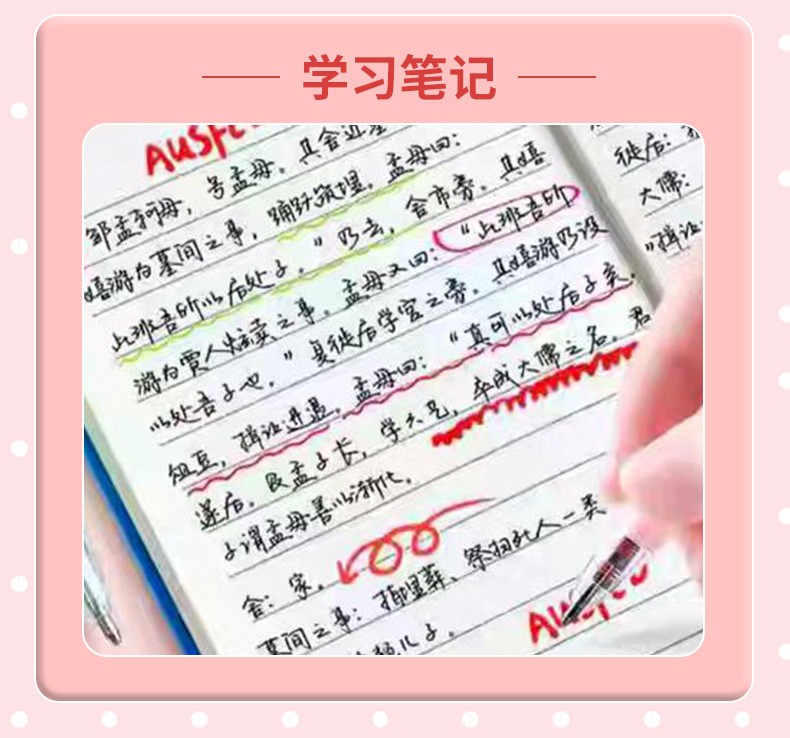 学习笔记
邹孟轲母，号孟母。其舍近墓
嬉游为墓间之事，踊跃筑埋。孟母曰：
此非吾所以居处子。”乃去，舍市旁。其嬉
游为贾人炫卖之事。孟母又曰：“此非吾所
以处吾子也。”复徙居学宫之旁。其嬉游乃设
俎豆，揖让进退。孟母曰：“真可以处居子矣。
遂居。及孟子长，学六艺，卒成大儒之名。君
子谓孟母善以渐化。
舍：家。
墓间之事：指埋葬、祭扫死人一类
徙居：
大儒：
“揖让